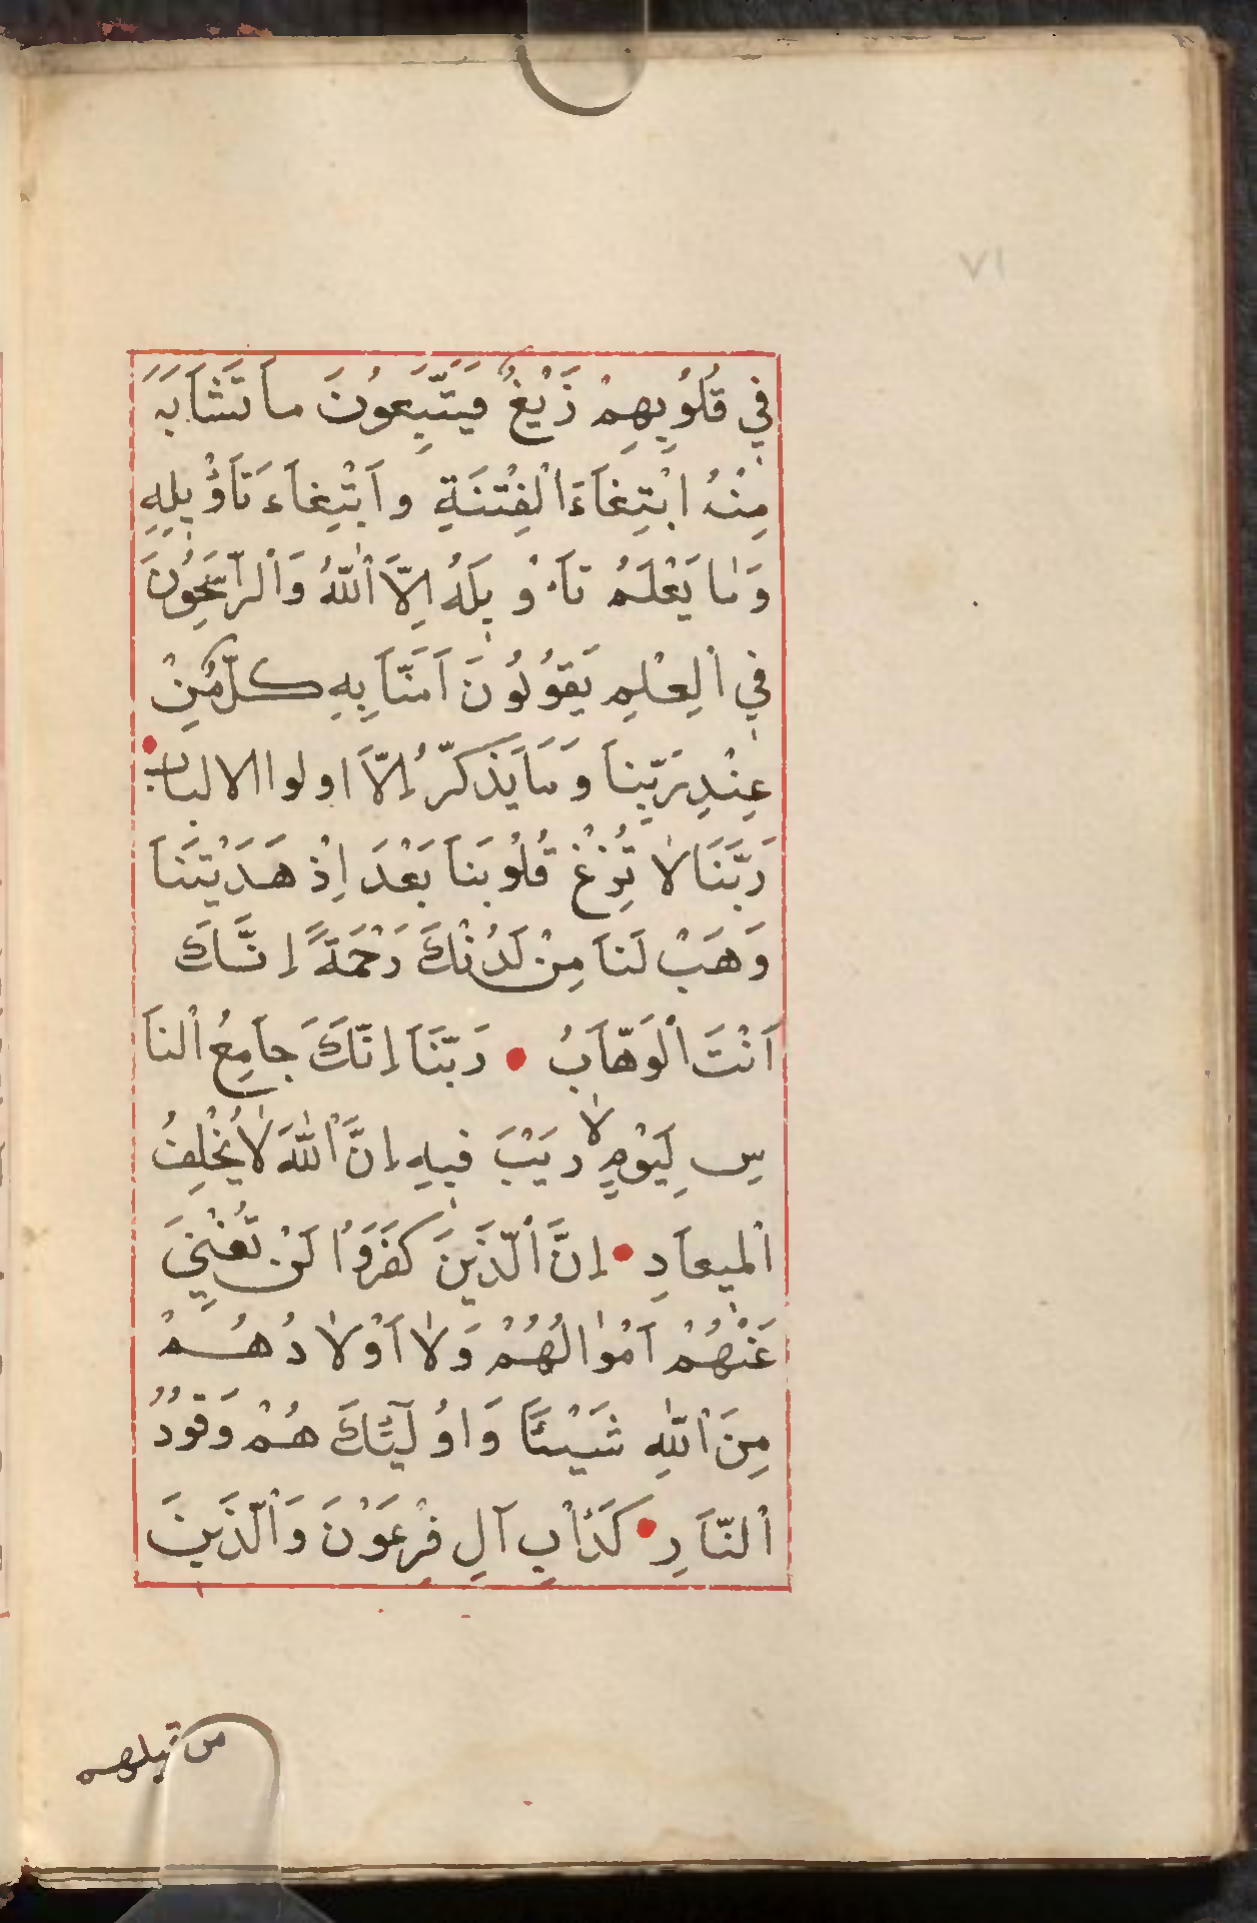 ٧١
في قُلُوبِهِمْ زَيْغٌ فَيَتَّبِعُونَ مَا تَشَابَهَ
مِنْهُ ابْتِغَآءَ الْفِتْنَةِ وَابْتِغَآءَ تَأْوِيلِهِ
وَمَا يَعْلَمُ تَأْوِيلَهُ اِلَّا اللّٰهُ وَالرَّاسِخُونَ
فِي الْعِلْمِ يَقُولُونَ اَمَنَّا بِهِ كُلٌّ مِنْ
عِنْدِ رَبِّنَا وَمَا يَذَّكَّرُ اِلَّا اولوا الالباب
رَبَّنَا لَا تُزِغْ قُلُوبَنَا بَعْدَ اِذْ هَدَيْتَنَا
وَهَبْ لَنَا مِنْ لَدُنْكَ رَحْمَةً اِنَّكَ
اَنْتَ الْوَهَّابُ • رَبَّنَا اِنَّكَ جَامِعُ النَا
سِ لِيَوْمٍ لَا رَيْبَ فِيهِ اِنَّ اللّٰهَ لَا يُخْلِفُ
الْمِيعَادِ • اِنَّ الَّذِينَ كَفَرُوا لَنْ تُغْنِيَ
عَنْهُمْ اَمْوَالُهُمْ وَلَا اَوْلَادُهُمْ
مِنَ اللّٰهِ شَيْئًا وَاُولٰٓئِكَ هُمْ وَقُودُ
النَّارِ • كَدَأْبِ آلِ فِرْعَوْنَ وَالَّذِينَ
من قبلهم